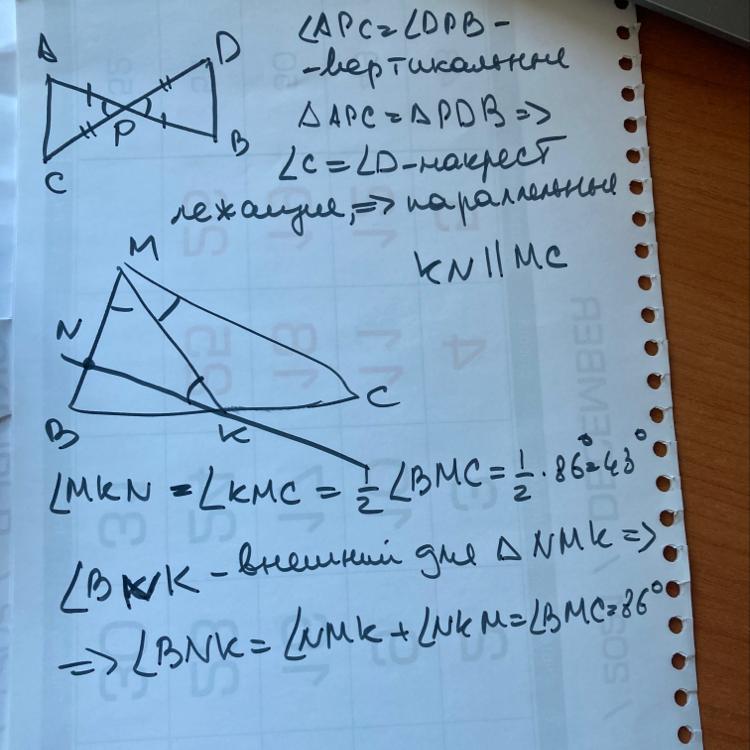 A
D
P
B
C
∠APC=∠DPB-
-вертикальные
△APC=△PDB=>
∠C=∠D-накрест
лежащие,=> параллельные
KN||MC
M
N
B
K
C
∠MKN=∠KMC=½∠BMC=½·86°=43°
∠BNK-внешний для △NMK=>
=>∠BNK=∠NMK+∠NKM=∠BMC=86°